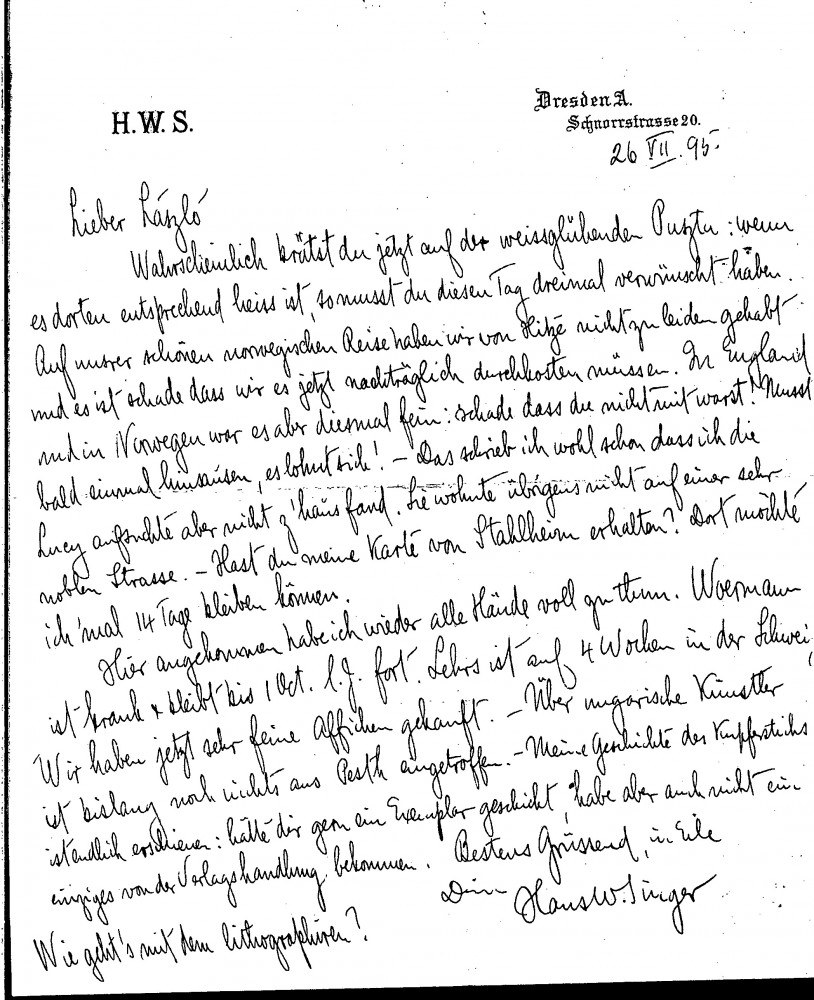 H.W.S.
Dresden A.
Schnorrstrasse 20.
26 VII. 95.
Lieber László
Wahrscheinlich brätst du jetzt auf der weissglühenden Puszta: wenn
es dorten entsprechend heiss ist, so musst du diesen Tag dreimal verwünscht haben.
Auf unsrer schönen norwegischen Reise haben wir von Hitze nicht zu leiden gehabt
und es ist schade dass wir es jetzt nachträglich durchkosten müssen. In England
und in Norwegen war es aber diesmal fein: schade dass du nicht mit warst! Musst
bald einmal hinsausen, es lohnt sich! – Das schrieb ich wohl schon dass ich die
Lucy aufsuchte aber nicht z'haus fand. Sie wohnte übrigens nicht auf einer sehr
noblen Strasse. – Hast du meine Karte von Stahlheim erhalten? Dort möchte
ich 'mal 14 Tage bleiben können.
Hier angekommen habe ich wieder alle Hände voll zu thun. Woermann
ist krank + bleibt bis 1 Oct. l.J. fort. Lehrs ist auf 4 Wochen in der Schwei
Wir haben jetzt sehr feine Affichen gekauft. – Über ungarische Künstler
ist bislang noch nichts aus Pesth eingetroffen. – Meine Geschichte des Kupferstichs
ist endlich erschienen: hätte dir gern ein Exemplar geschickt, habe aber auch nicht ein
einziges von der Verlagshandlung bekommen. Bestens Grüssend, in Eile
Dein Hans W. Singer
Wie geht's mit dem lithographiren?